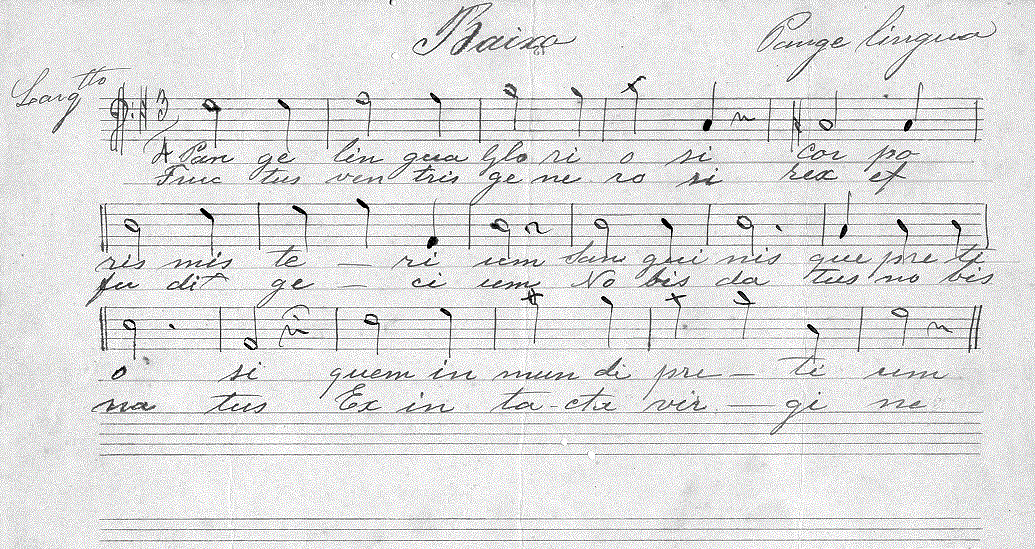 Baixo
Pange lingua
Largtto
3
A Pan ge lin gua Glo ri o si Cor po
Fruc tus ven tris ge ne ro si rex ef
ris mis te — ri um San gui nis que pre ti
fu dit ge — ci um No bis da tus no bis
o si quem in mun di pre — ti um
na tus Ex in ta-cta vir — gi ne